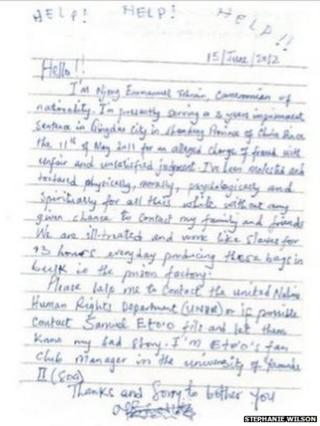 HELP! HELP! HELP!!
15/June/2012
Hello!!
I'm Njong Emmanuel Tohnain, Cameroonian of
nationality. I'm presently serving a 3 years imprisonment
Sentence in Qingdao City in Shandong Province of China Since
the 11th of May 2011 for an alleged Charge of fraud with
unfair and unsatisfied judgment. I've been molested and
tortured physically, morally, psychologically and
Spiritually for all this while without any
given chance to contact my family and friends
We are ill-treated and work like slaves for
13 hours everyday producing these bags in
bulk in the prison factory.
Please help me to Contact the united Nations
Human Rights Department (UNHR) or is possible
Contact Samuel Eto'o fils and let them
know my sad story. I'm Eto'o's fan
Club manager in the university of Yaounde
II (Soa)
Thanks and Sorry to bother you
STEPHANIE WILSON